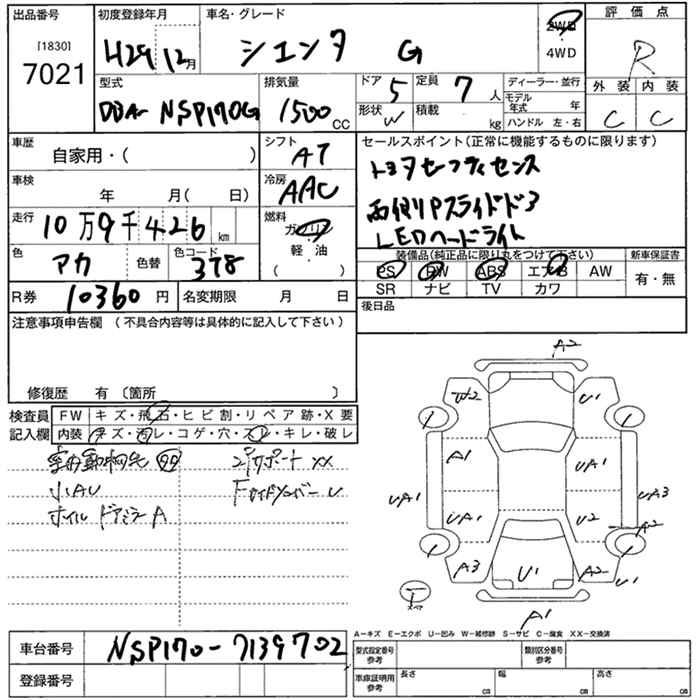 出品番号
[1830]
7021
初度登録年月
H29 12月
車名・グレード
シエンタ G
2WD
4WD
評価点
R
外装 内装
C C
型式
DBA- NSP170G
排気量
1500 CC
ドア 5
形状 W
定員 7 人
積載 kg
ディーラー・並行
モデル年式 年
ハンドル 左・右
車歴
自家用・( )
シフト
AT
車検
年 月( 日)
冷房
AAC
走行
10万9千426 km
燃料
ガソリン
軽油
( )
色
アカ
色替
色コード
3T8
R券 10360円
名変期限 月 日
セールスポイント(正常に機能するものに限ります)
トヨタセーフティセンス
両側Pスライドドア
LEDヘッドライト
装備品(純正品に限り丸をつけて下さい)
PS PW ABS エアB AW
SR ナビ TV カワ
新車保証書
有・無
後日品
注意事項申告欄(不具合内容等は具体的に記入して下さい)
修復歴 有〔箇所 〕
検査員記入欄
FW キズ・飛石・ヒビ割・リペア跡・X要
内装 キズ・汚レ・コゲ・穴・スレ・キレ・破レ
小AU
ホイル ドアミラーA
A2
W2 U1
A1 UA1
UA1 UA3
UA1 U2
A2
A3 U1 A2 U1
A1
A-キズ E-エクボ U-凹み W-補修跡 S-サビ C-腐食 XX-交換済
車台番号 NSP170-7139702
登録番号
型式指定番号 参考
類別区分番号 参考
車庫証明用 参考
長さ cm 幅 cm 高さ cm